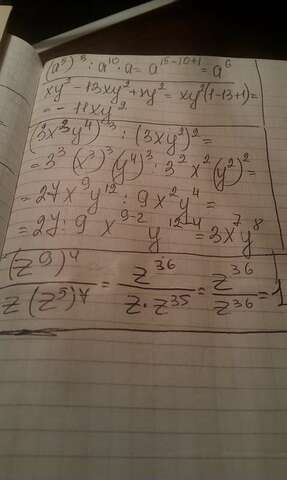 (a⁵)³ : a¹⁰ · a = a¹⁵⁻¹⁰⁺¹ = a⁶
xy² - 13xy² + xy² = xy²(1-13+1) =
= - 11xy²
(3x³y⁴)³ : (3xy²)² =
= 3³ (x³)³ (y⁴)³ : 3² x² (y²)² =
= 27x⁹y¹² : 9x²y⁴ =
= 27 : 9 x⁹⁻² y¹²⁻⁴ = 3x⁷y⁸
(z⁹)⁴ / z(z⁵)⁷ = z³⁶ / z·z³⁵ = z³⁶ / z³⁶ = 1